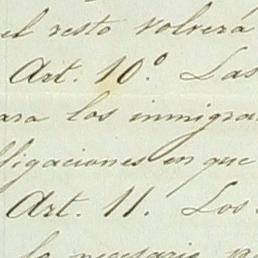 el resto volverá
Art. 10.° Las
ara los inmigra
ligaciones en que
Art. 11. Los
lo necesario p